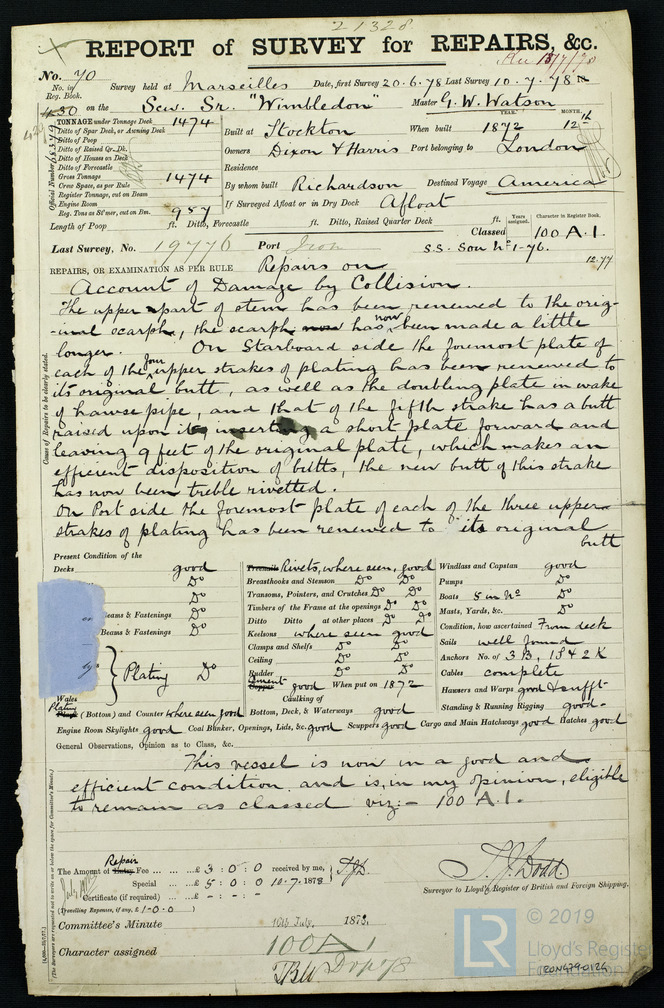 21328
REPORT of SURVEY for REPAIRS, &c.
No. 70
No. in Reg. Book. Survey held at Marseilles Date, first Survey 20.6.78 Last Survey 10.7.78
430 on the Scw. Sr. "Wimbledon" Master G. W. Watson
TONNAGE under Tonnage Deck 1474
Ditto of Spar Deck, or Awning Deck
Ditto of Poop
Ditto of Raised Qr. Dk.
Ditto of Houses on Deck
Ditto of Forecastle
Gross Tonnage 1474
Crew Space, as per Rule
Register Tonnage, cut on Beam
Engine Room
Reg. Tons as St'mer, cut on Bm. 957
Official Number
Built at Stockton When built YEAR. 1872 MONTH. 12th
Owners Dixon & Harris Port belonging to London
Residence
By whom built Richardson Destined Voyage America
If Surveyed Afloat or in Dry Dock Afloat
Length of Poop ft. Ditto, Forecastle ft. Ditto, Raised Quarter Deck ft.
Years assigned. Character in Register Book.
Classed 100 A.1.
Last Survey, No. 19776 Port Iron S.S. Sou No 1-76.
12.77
REPAIRS, OR EXAMINATION AS PER RULE Repairs on
Account of Damage by Collision.
The upper part of stem has been renewed to the orig-
-inal scarph, the scarph now has now been made a little
longer. On Starboard side the foremost plate of
each of the four upper strakes of plating has been renewed to
its original butt, as well as the doubling plate in wake
of hawse pipe, and that of the fifth strake has a butt
raised upon it, inserting a short plate forward and
leaving 9 feet of the original plate, which makes an
efficient disposition of butts, the new butt of this strake
has now been treble rivetted.
On Port side the foremost plate of each of the three upper
strakes of plating has been renewed to its original
butt
Cause of Repairs to be clearly stated.
Present Condition of the
Decks good
Do
Do
Beams & Fastenings Do
Beams & Fastenings Do
Plating Do
Wales
Plating (Bottom) and Counter where seen good
Engine Room Skylights good Coal Bunker, Openings, Lids, &c. good Scuppers good Cargo and Main Hatchways good Hatches good
Treenails Rivets, where seen, good
Breasthooks and Stemson Do Do
Transoms, Pointers, and Crutches Do Do
Timbers of the Frame at the openings Do Do
Ditto Ditto at other places Do Do
Keelsons where seen good
Clamps and Shelfs Do Do
Ceiling Do Do
Rudder Do Do
Cement Copper good When put on 1872
Caulking of
Bottom, Deck, & Waterways good
Windlass and Capstan good
Pumps Do
Boats 5 in No Do
Masts, Yards, &c. Do
Condition, how ascertained From deck
Sails well found
Anchors No. of 3 B, 1 S & 2 K
Cables complete
Hawsers and Warps good & sufft
Standing & Running Rigging good
General Observations, Opinion as to Class, &c.
This vessel is now in a good and
efficient condition and is, in my opinion, eligible
to remain as classed viz:- 100 A.1.
The Amount of Repair Entry Fee £ 3 : 0 : 0 received by me,
Special £ 5 : 0 : 0 10.7.1878
Certificate (if required) £ - : - : -
(Travelling Expenses, if any, £ 1-0-0)
T. J. Dodd.
Surveyor to Lloyd's Register of British and Foreign Shipping.
Committee's Minute 16th July. 1878.
Character assigned 100 A 1
© 2019
LR
Lloyd's Register
Foundation